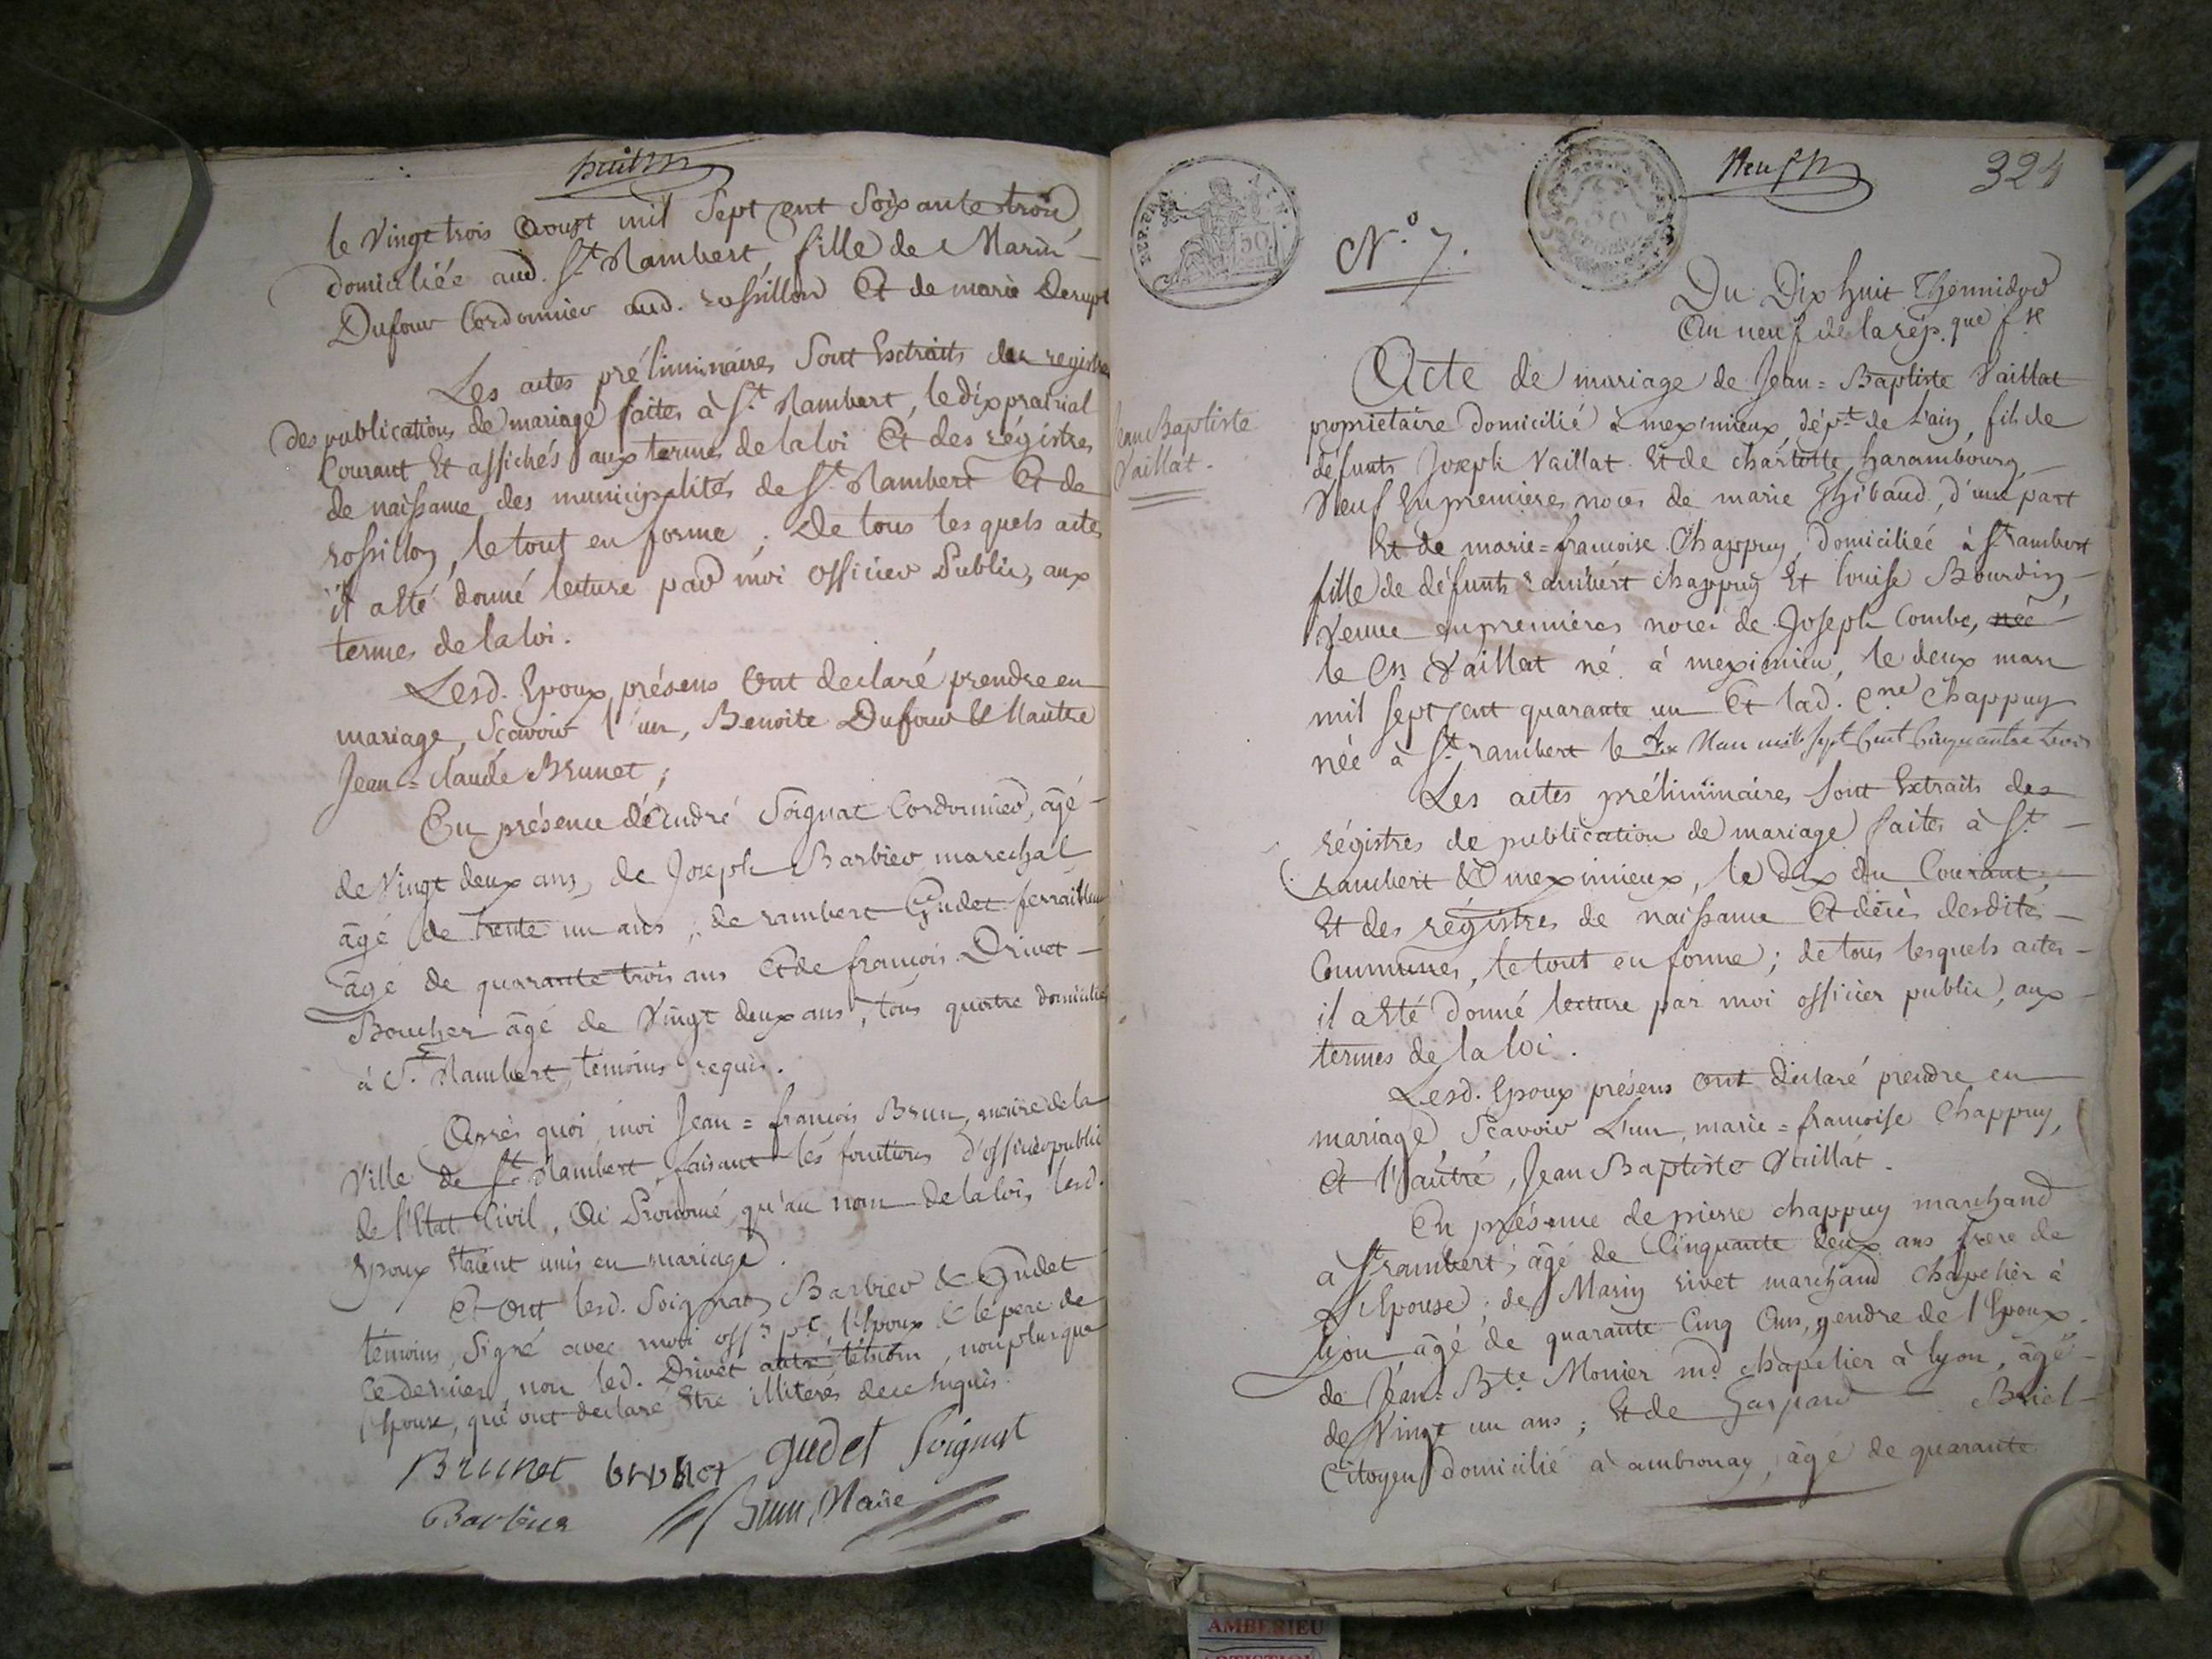 huit
le Vingt trois Aoust mil Sept Cent Soixante trois,
domiciliée aud. St. Rambert, fille de Marin
Dufour Cordonnier aud. rossillon Et de marie
Les actes préliminaires Sont Extraits des registres
des publications de mariage faites à St. Rambert, le dix prairial
Courant Et affichés aux termes de la loi Et des régistres
de naissance des municipalités de St. Rambert Et de
rossillon, le tout en forme ; De tous les quels actes
il a Eté donné lecture par moi Officier Public, aux
termes de la loi.
Lesd. Epoux présens Ont declaré prendre en
mariage, Scavoir l'un, Benoite Dufour & l'autre
Jean=claude Brunet ;
En présence d'André Soignat Cordonnier, âgé
de Vingt deux ans, de Joseph Barbier marechal
âgé de trente un ans ; de rambert Gudet ferrailleur
âgé de quarante trois ans Et de françois Drivet
Boucher âgé de Vingt deux ans, tous quatre domiciliés
à St. Rambert, témoins requis.
Après quoi, moi Jean=françois Brun, maire de la
Ville de St. Rambert, faisant les fonctions d'officier public
de l'Etat Civil, Ai Prononcé, qu'au nom de la loi, lesd.
Epoux Etaient unis en mariage.
Et Ont lesd. Soignat, Barbier & Gudet
témoins, Signé avec moi offr. pc. l'Epoux & le pere de
ce dernier, non led. Drivet autre témoin, non plus que
l'Epouse, qui ont declaré Etre illiterés de ce Enquis.
Brunet brunet gudet Soignat
Barbier Brun, Maire
Neuf
324
REP. FRA.
50
N.o 7.
Du Dix huit Thermidor
An neuf de la rép. que fse
Jean Baptiste
Vaillat.
Acte de mariage de Jean=Baptiste Vaillat
propriétaire domicilié à meximieux, dépt. de L'ain, fils de
défunts Joseph Vaillat Et de charlotte harambourg,
Veuf En premieres noces de marie Thibaud, d'une part
Et de marie=francoise Chappuy, domiciliée à St. rambert
fille de défunts rambert chappuy Et louise Bourdin,
Veuve en premieres noces de Joseph Combe, née
le Cn. Vaillat né à meximieu, le deux mars
mil sept cent quarante un Et lad. Cne. Chappuy
née à St. rambert le dix Mars mil sept Cent Cinquante trois
Les actes préliminaires Sont Extraits des
régistres de publication de mariage faites à St.
rambert & meximieux, le dix du Courant,
Et des régistres de naissance Et décès desdites
Communes, le tout en forme ; de tous lesquels actes
il a Eté donné lecture par moi officier public, aux
termes de la loi.
Lesd. Epoux présens Ont déclaré prendre en
mariage, Scavoir L'un, marie=francoise Chappuy,
Et l'autre, Jean Baptiste Vaillat.
En présence de pierre chappuy marchand
à St. rambert, âgé de Cinquante deux ans frere de
l'Epouse ; de Marin rivet marchand Chapelier à
Lyon âgé de quarante Cinq Ans, gendre de l'Epoux.
de Jean=Bte. Monier md. chapelier à lyon, âgé
de Vingt un ans ; Et de Gaspard Briel
Citoyen domicilié à ambronay, âgé de quarante
AMBERIEU